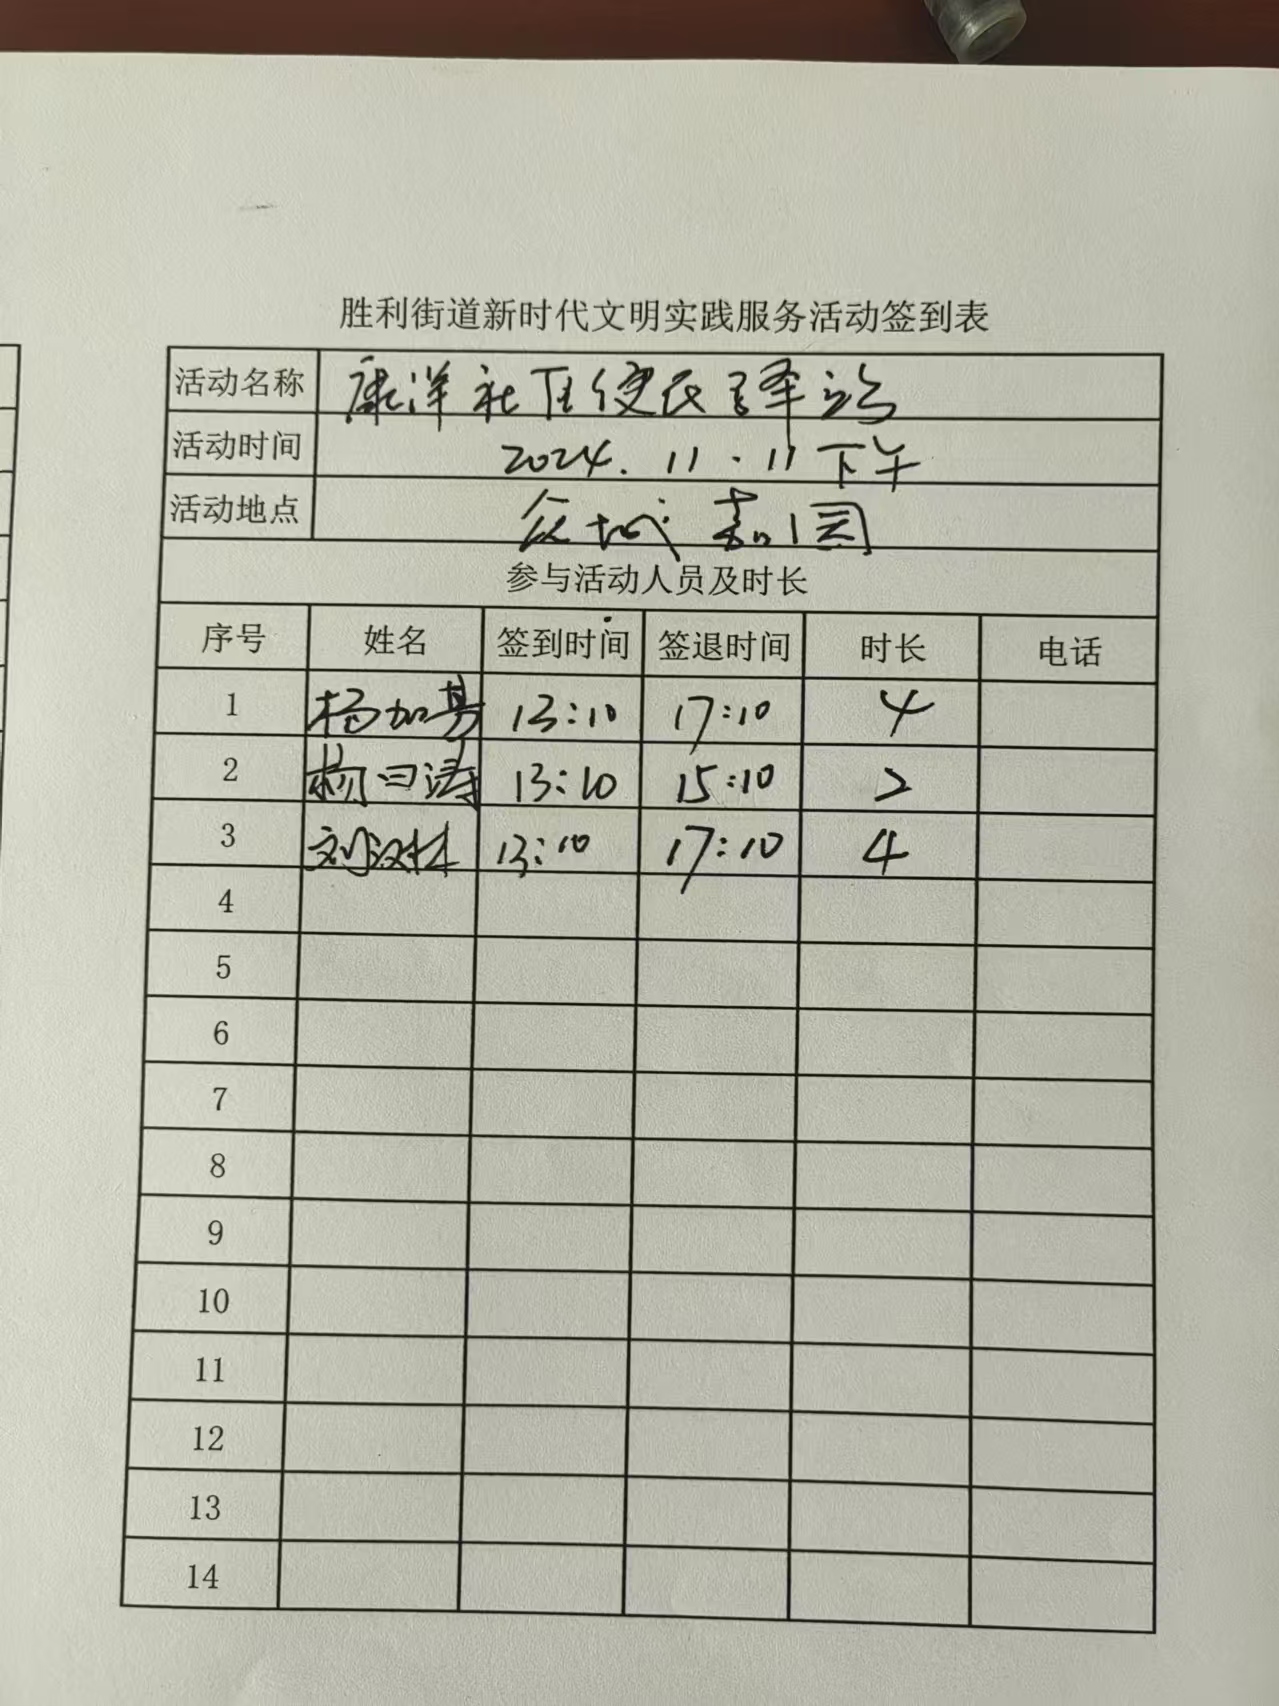 胜利街道新时代文明实践服务活动签到表
活动名称 康洋社区便民驿站
活动时间 2024.11.11下午
活动地点 众城嘉园
参与活动人员及时长
序号 姓名 签到时间 签退时间 时长 电话
1 杨加 13:10 17:10 4
2 杨曰涛 13:10 15:10 2
3 刘汉林 13:10 17:10 4
4
5
6
7
8
9
10
11
12
13
14